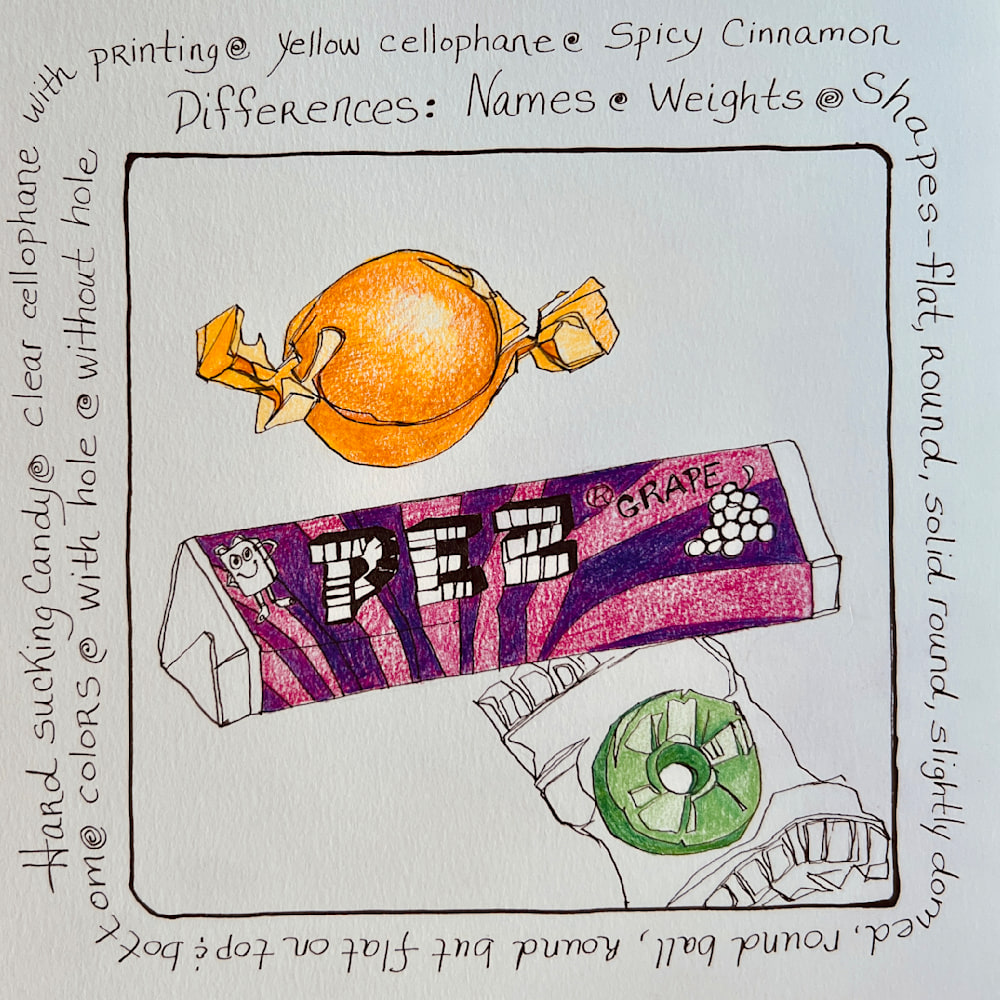 Hard sucking Candy @ clear cellophane with printing @ yellow cellophane @ Spicy Cinnamon
Differences: Names @ Weights @ Shapes-flat, Round, solid round, slightly domed, round ball, Round but flat on top & bottom @ colors @ with hole @ without hole
PEZ ® GRAPE